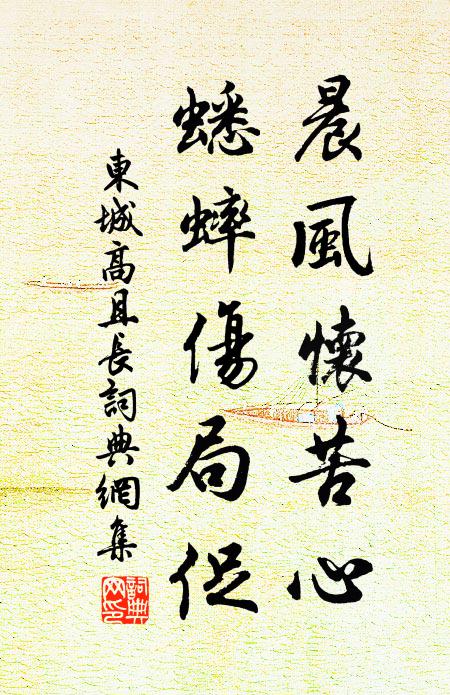 晨風懷苦心
蟋蟀傷局促
東城高且長詞典網集
詞典